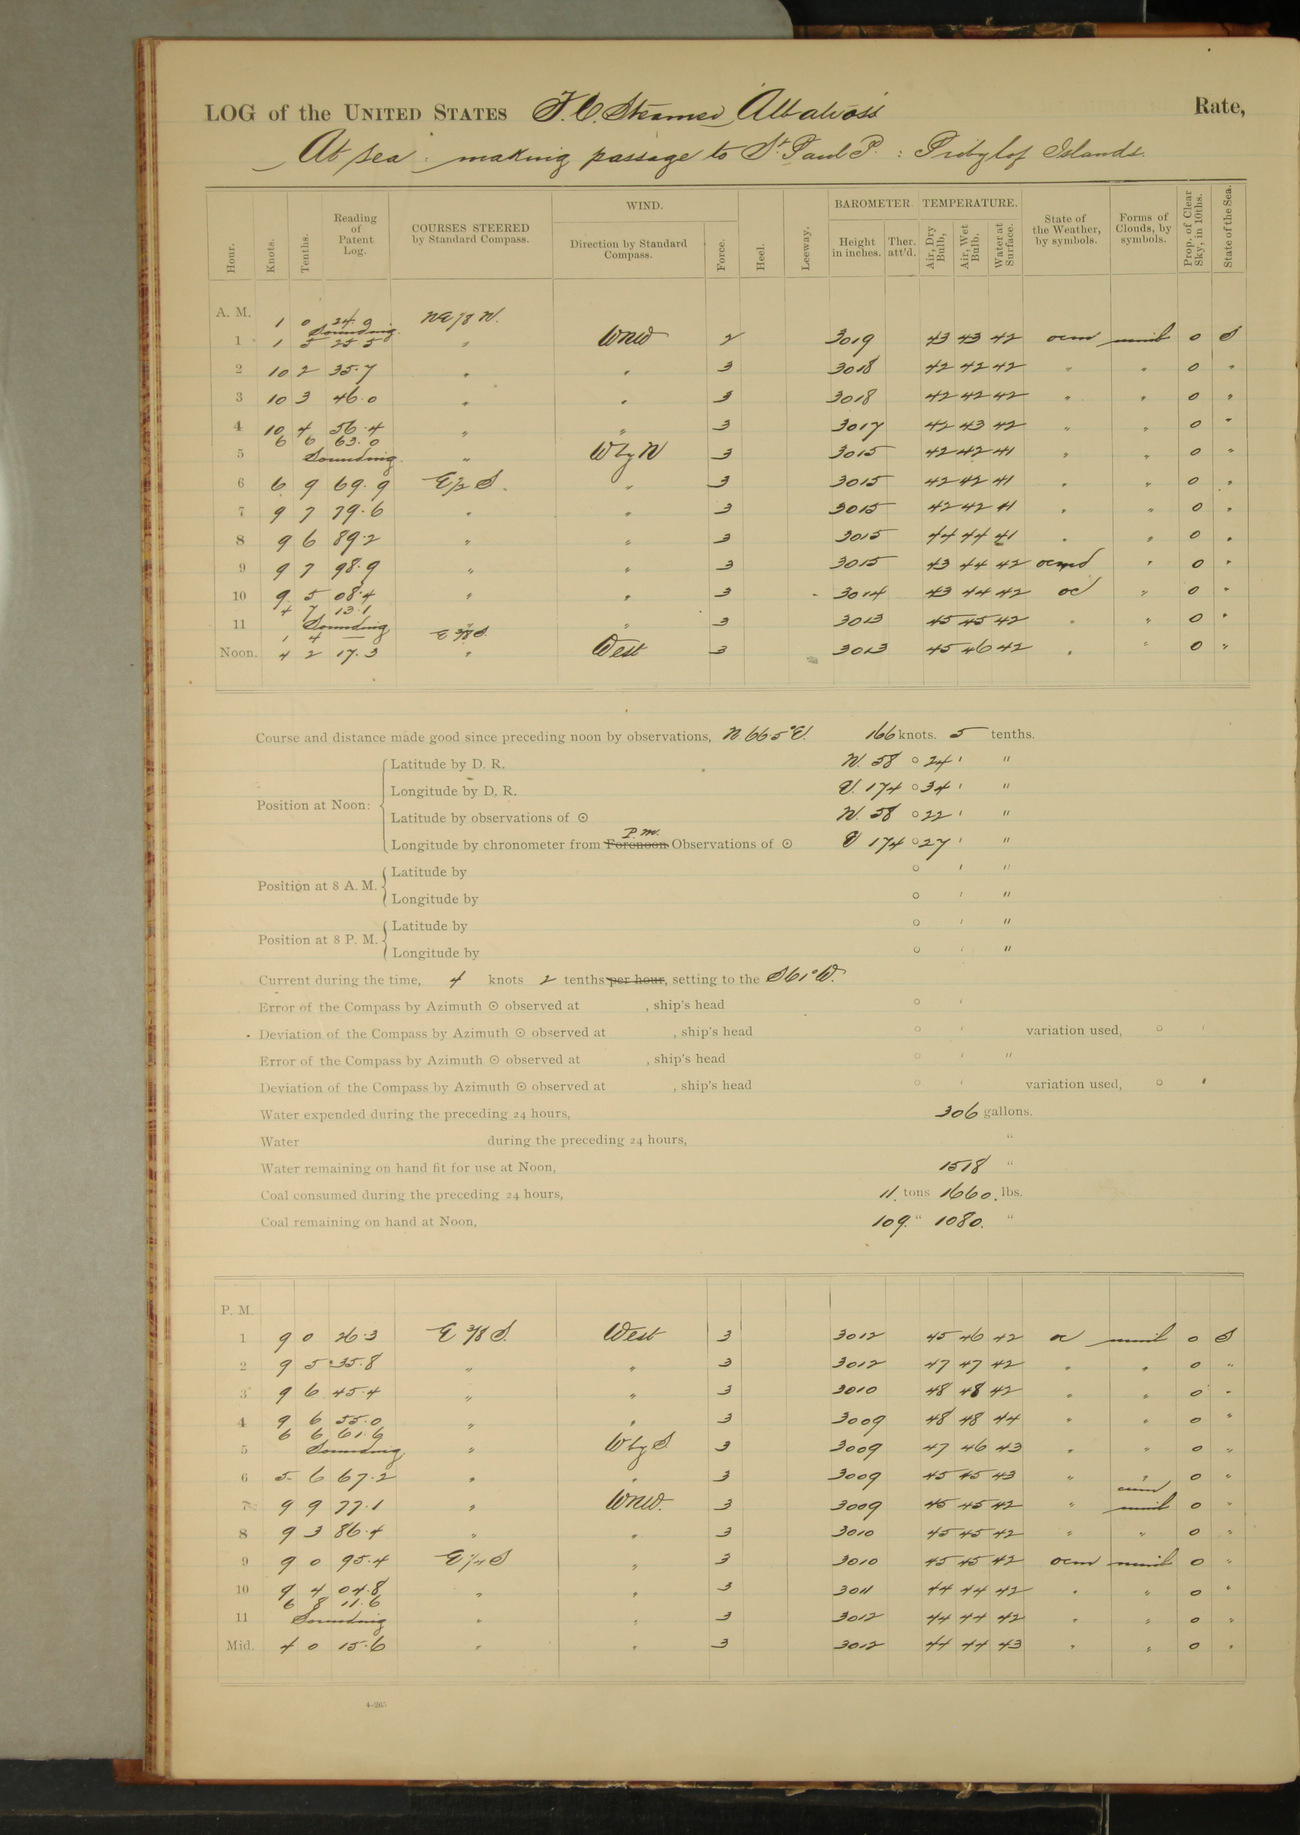 LOG of the UNITED STATES F.C. Steamer Albatross Rate,
At sea : making passage to St. Paul P. : Pribylof Islands.
Hour. Knots. Tenths. Reading of Patent Log. COURSES STEERED by Standard Compass. WIND. Direction by Standard Compass. Force. Heel. Leeway. BAROMETER. Height in inches. Ther. att'd. TEMPERATURE. Air, Dry Bulb, Air, Wet Bulb. Water at Surface. State of the Weather, by symbols. Forms of Clouds, by symbols. Prop. of Clear Sky, in 10ths. State of the Sea.
A. M.
1 0 24.0 NE 7/8 N.
Sounding
1 1 5 25 5 " WNW 2 3019 43 43 42 ocm nimb 0 S
2 10 2 35.7 " " 3 3018 42 42 42 " " 0 "
3 10 3 46.0 " " 3 3018 42 42 42 " " 0 "
4 10 4 56.4 " " 3 3017 42 43 42 " " 0 "
6 6 63.0
5 Sounding " W by N 3 3015 42 42 41 " " 0 "
6 6 9 69.9 E 1/2 S. " 3 3015 42 42 41 " " 0 "
7 9 7 79.6 " " 3 3015 42 42 41 " " 0 "
8 9 6 89.2 " " 3 3015 44 44 41 " " 0 "
9 9 7 98.9 " " 3 3015 43 44 42 ocmd " 0 "
10 9 5 08.4 " " 3 3014 43 44 42 od " 0 "
4 7 13.1
11 Sounding " 3 3013 45 45 42 " " 0 "
1 4 — E 3/8 S.
Noon. 4 2 17.3 " West 3 3013 45 46 42 " " 0 "
Course and distance made good since preceding noon by observations, N 66.5° E. 166 knots. 5 tenths.
Position at Noon:
Latitude by D. R. N. 58 ° 24 ' "
Longitude by D. R. E. 174 ° 34 ' "
Latitude by observations of ☉ N. 58 ° 22 ' "
P.M.
Longitude by chronometer from Forenoon Observations of ☉ E 174 ° 27 ' "
Position at 8 A. M.
Latitude by ° ' "
Longitude by ° ' "
Position at 8 P. M.
Latitude by ° ' "
Longitude by ° ' "
Current during the time, 4 knots 2 tenths per hour, setting to the S 61° W.
Error of the Compass by Azimuth ☉ observed at , ship's head ° '
Deviation of the Compass by Azimuth ☉ observed at , ship's head ° ' variation used, ° '
Error of the Compass by Azimuth ☉ observed at , ship's head ° ' "
Deviation of the Compass by Azimuth ☉ observed at , ship's head ° ' variation used, ° '
Water expended during the preceding 24 hours, 306 gallons.
Water during the preceding 24 hours, "
Water remaining on hand fit for use at Noon, 1518 "
Coal consumed during the preceding 24 hours, 11. tons 1660. lbs.
Coal remaining on hand at Noon, 109. " 1080. "
P. M.
1 9 0 26.3 E 3/8 S. West 3 3012 45 46 42 oc nimb 0 S
2 9 5 35.8 " " 3 3012 47 47 42 " " 0 "
3 9 6 45.4 " " 3 3010 48 48 42 " " 0 "
4 9 6 55.0 " " 3 3009 48 48 44 " " 0 "
6 6 61.6
5 Sounding " W by S 3 3009 47 46 43 " " 0 "
6 5 6 67.2 " " 3 3009 45 45 43 " " 0 "
cum
7 9 9 77.1 " WNW. 3 3009 45 45 42 " nimb 0 "
8 9 3 86.4 " " 3 3010 45 45 42 " " 0 "
9 9 0 95.4 E 1/4 S " 3 3010 45 45 42 ocm nimb 0 "
10 9 4 04.8 " " 3 3011 44 44 42 " " 0 "
6 8 11.6
11 Sounding " " 3 3012 44 44 42 " " 0 "
Mid. 4 0 15.6 " " 3 3012 44 44 43 " " 0 "
4-265